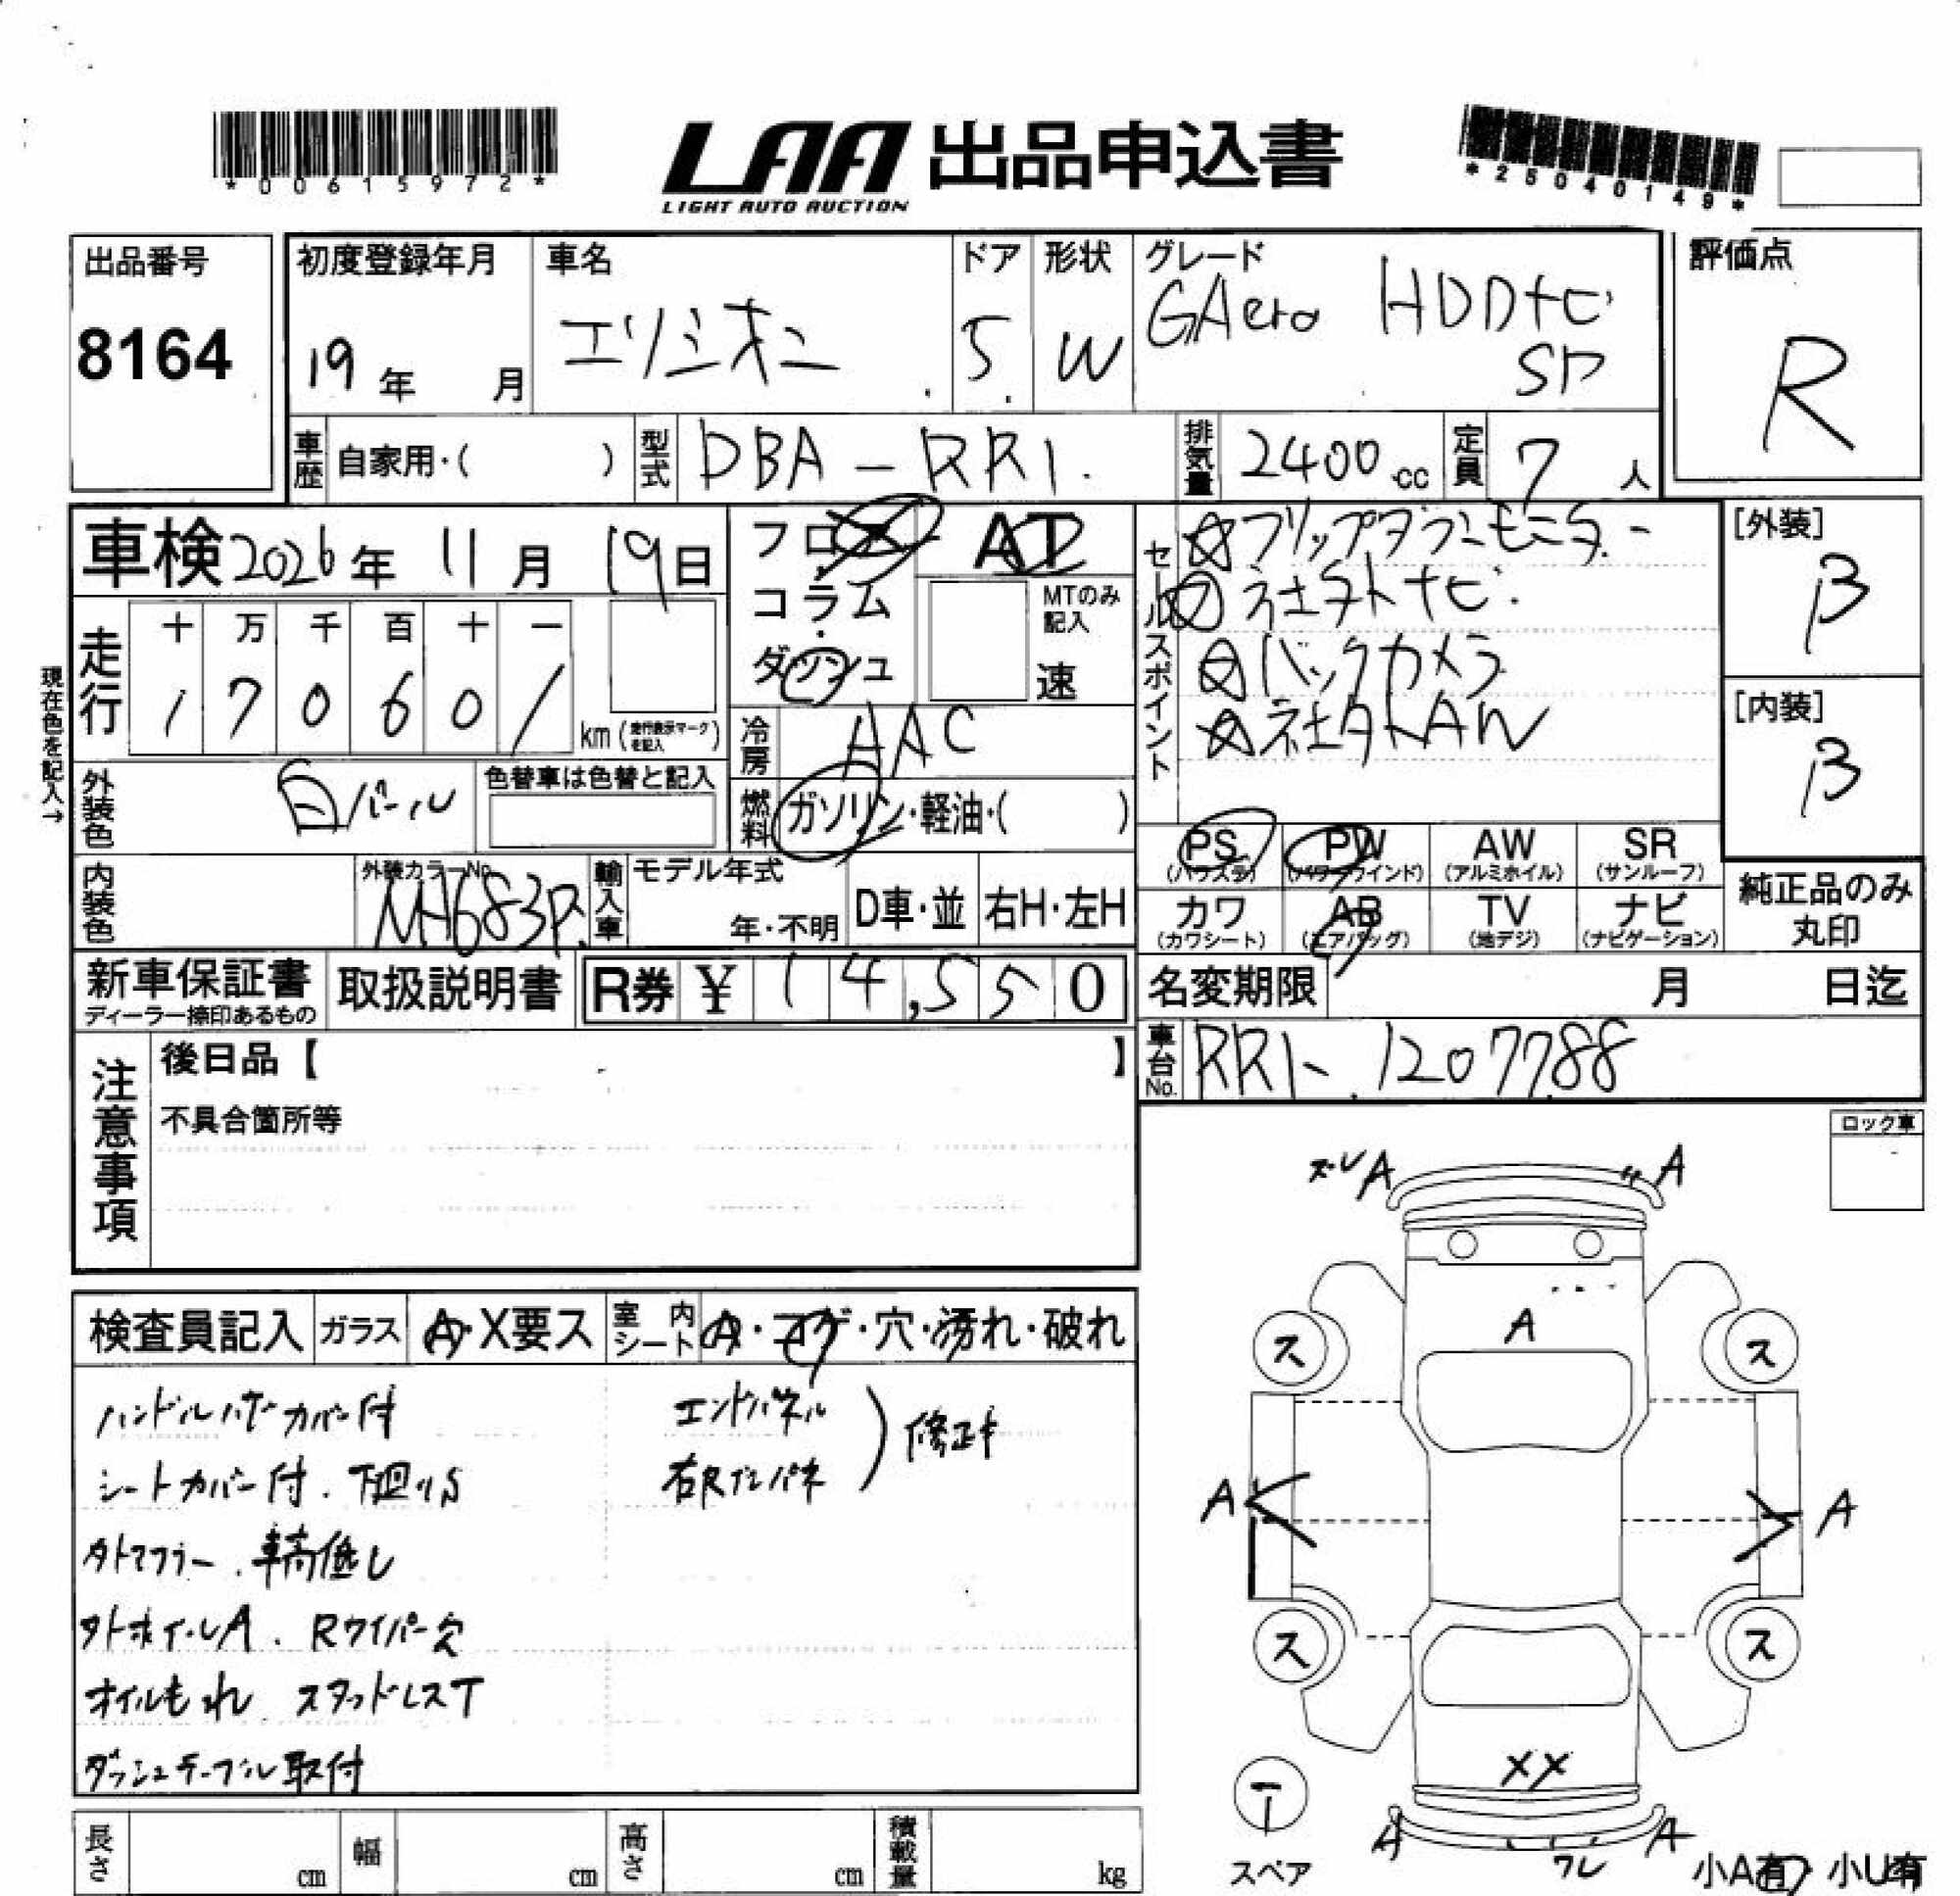 *00615972*
LAA 出品申込書
LIGHT AUTO AUCTION
*25040149*
出品番号
8164
初度登録年月
19年 月
車名
エリシオン
ドア
5
形状
W
グレード
GAero HDDナビ
SP
評価点
R
車歴 自家用・( )
型式 DBA-RR1
排気量 2400 cc
定員 7人
車検 2026年 11月 19日
フロア
コラム
ダッシュ
AT
MTのみ記入
速
セールスポイント
フリップダウンモニター
社外ナビ
バックカメラ
社外AW
[外装]
B
[内装]
B
現在色を記入→
走行
十 万 千 百 十 一
1 7 0 6 0 /
km(走行表示マークを記入)
冷房 AAC
外装色 白パール
色替車は色替と記入
燃料 ガソリン・軽油・( )
PS (パワステ)
PW (パワーウインド)
AW (アルミホイル)
SR (サンルーフ)
カワ (カワシート)
AB (エアバッグ)
TV (地デジ)
ナビ (ナビゲーション)
純正品のみ
丸印
内装色
外装カラーNo.
NH683P
輸入車
モデル年式
年・不明
D車・並
右H・左H
新車保証書
ディーラー捺印あるもの
取扱説明書
R券 ¥ 14,550
名変期限 月 日迄
車台No. RR1-1207788
注意事項
後日品【 】
不具合箇所等
ロック車
検査員記入
ガラス A・X要ス
室内シート A・コゲ・穴・汚れ・破れ
ハンドルカバー付
シートカバー付．下廻りS
外マフラー．車高低し
外ホイールA．Rワイパー欠
オイルもれ スタッドレスT
ダッシュテーブル取付
エンドパネル
右Rインパネ
修正キ
ズレA
A
A
ス
ス
A
A
ス
ス
XX
T
スペア
A
ワレ
A
小A有・小U有
長さ cm
幅 cm
高さ cm
積載量 kg